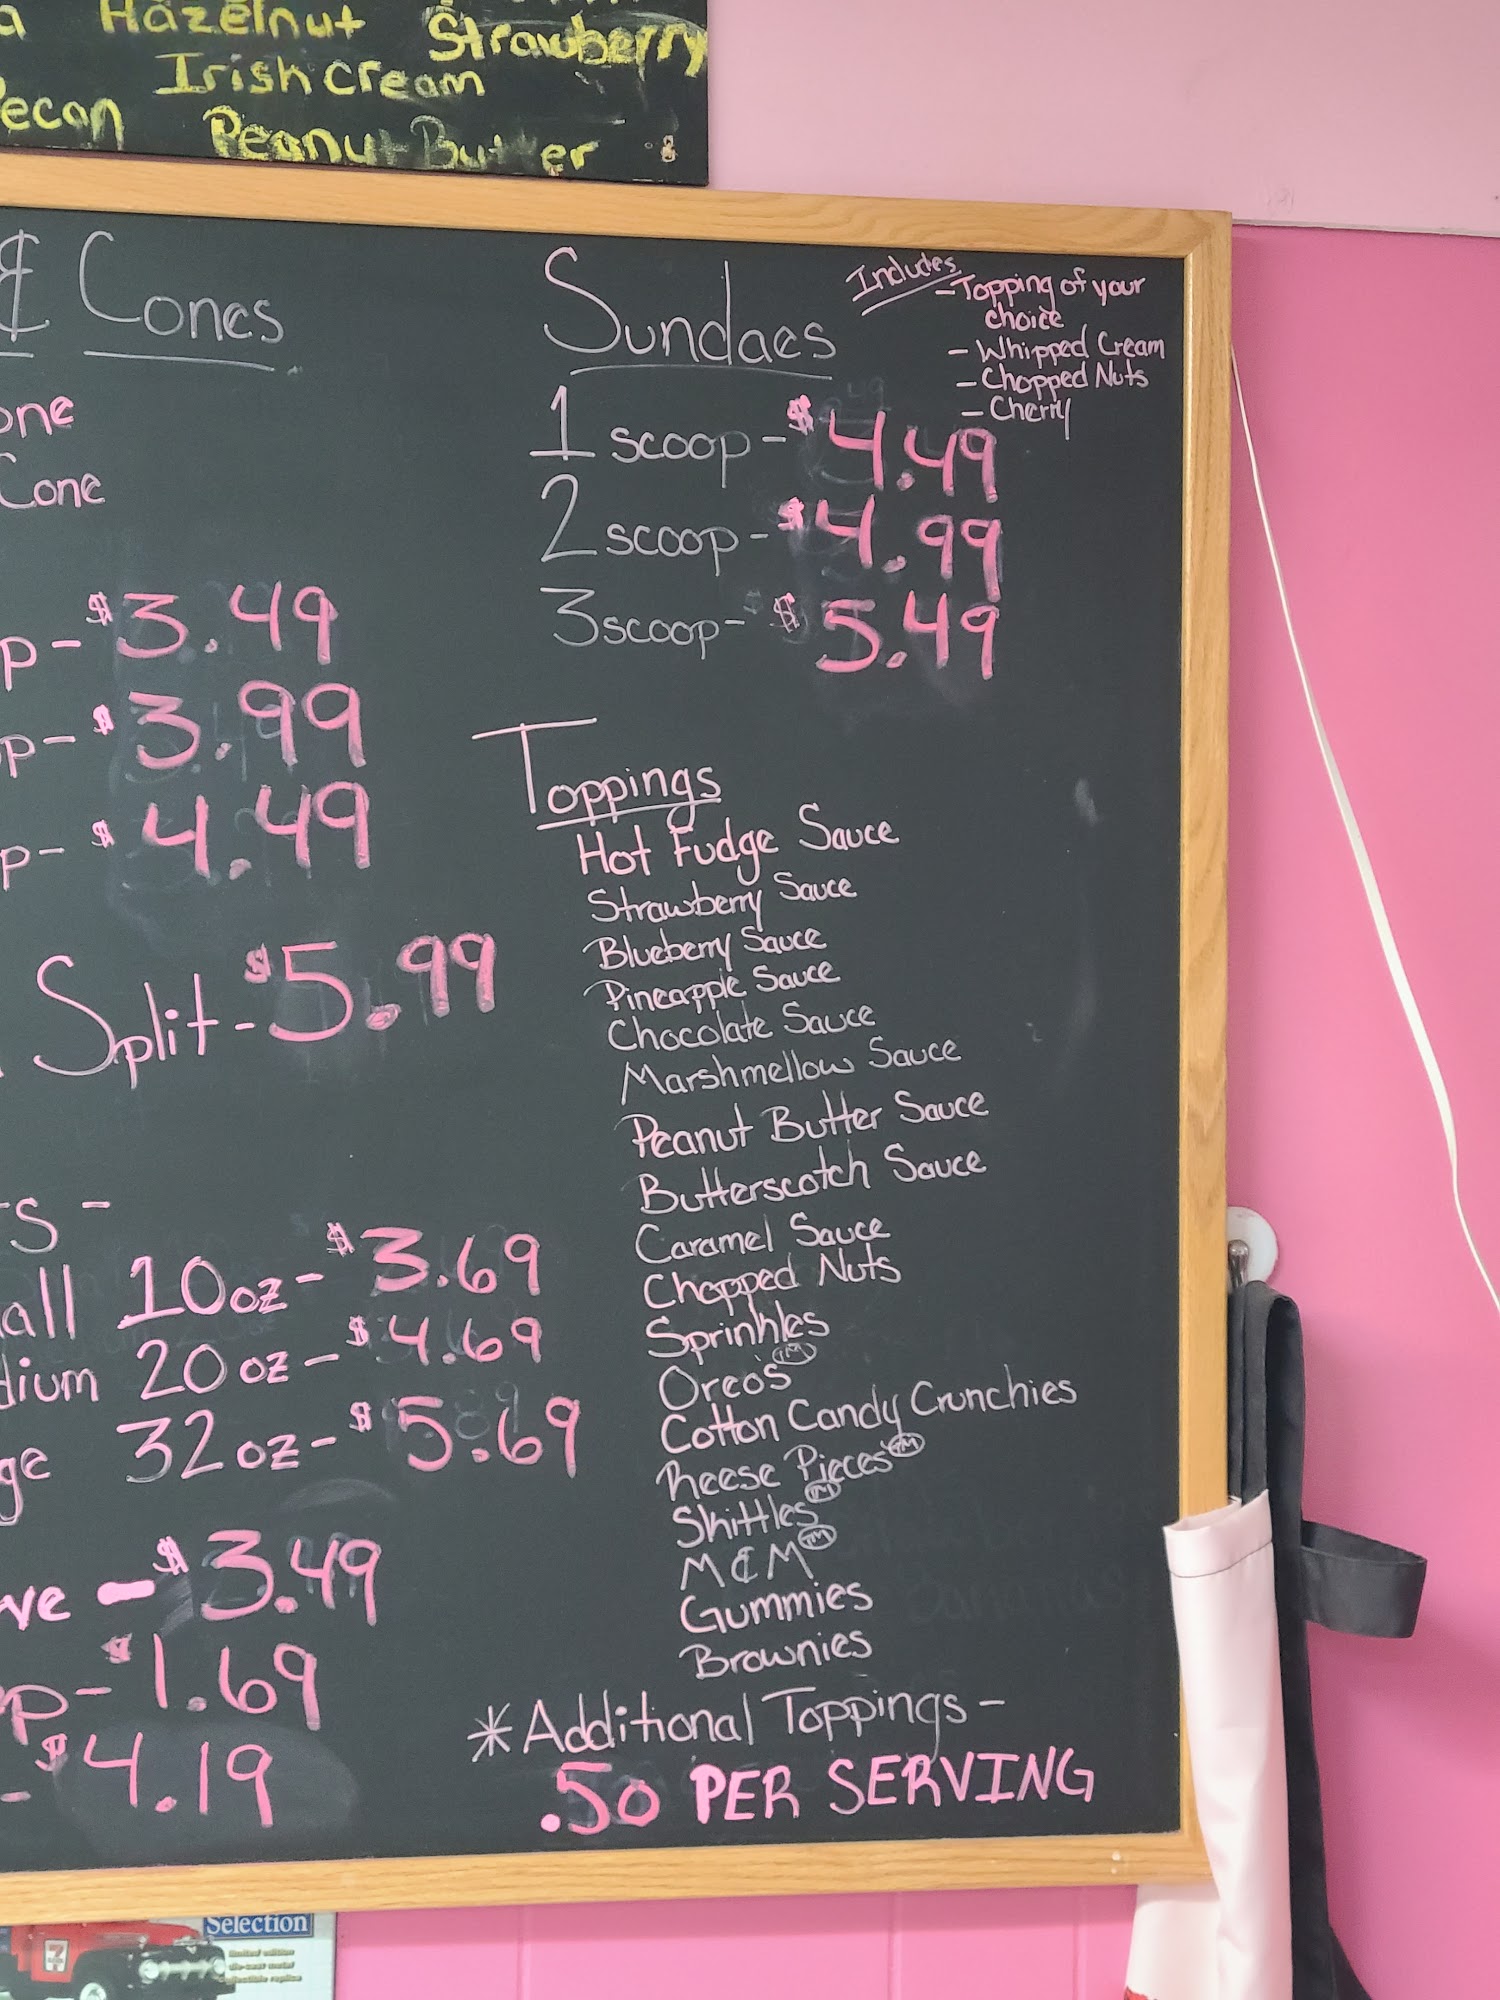 Hazelnut Strawberry
Irish Cream
Pecan Peanut Butter
& Cones
one
Cone
p - $3.49
p - $3.99
p - $4.49
Split - $5.99
s -
all 10oz - $3.69
dium 20oz - $4.69
ge 32oz - $5.69
ve - $3.49
p - $1.69
- $4.19
Sundaes
Includes
- Topping of your
choice
- Whipped Cream
- Chopped Nuts
- Cherry
1 scoop - $4.49
2 scoop - $4.99
3 scoop - $5.49
Toppings
Hot Fudge Sauce
Strawberry Sauce
Blueberry Sauce
Pineapple Sauce
Chocolate Sauce
Marshmellow Sauce
Peanut Butter Sauce
Butterscotch Sauce
Caramel Sauce
Chopped Nuts
Sprinkles
Oreo's TM
Cotton Candy Crunchies
Reese Pieces TM
Skittles TM
M&M TM
Gummies
Brownies
*Additional Toppings -
.50 PER SERVING
Selection
limited edition
die-cast metal
collectible replica
7